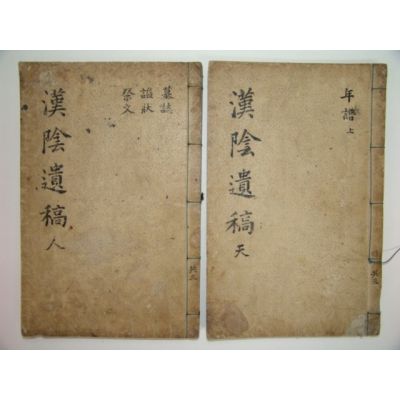 漢陰遺稿 天
年譜 上
共三
漢陰遺稿 人
墓誌
諡狀
祭文
共三